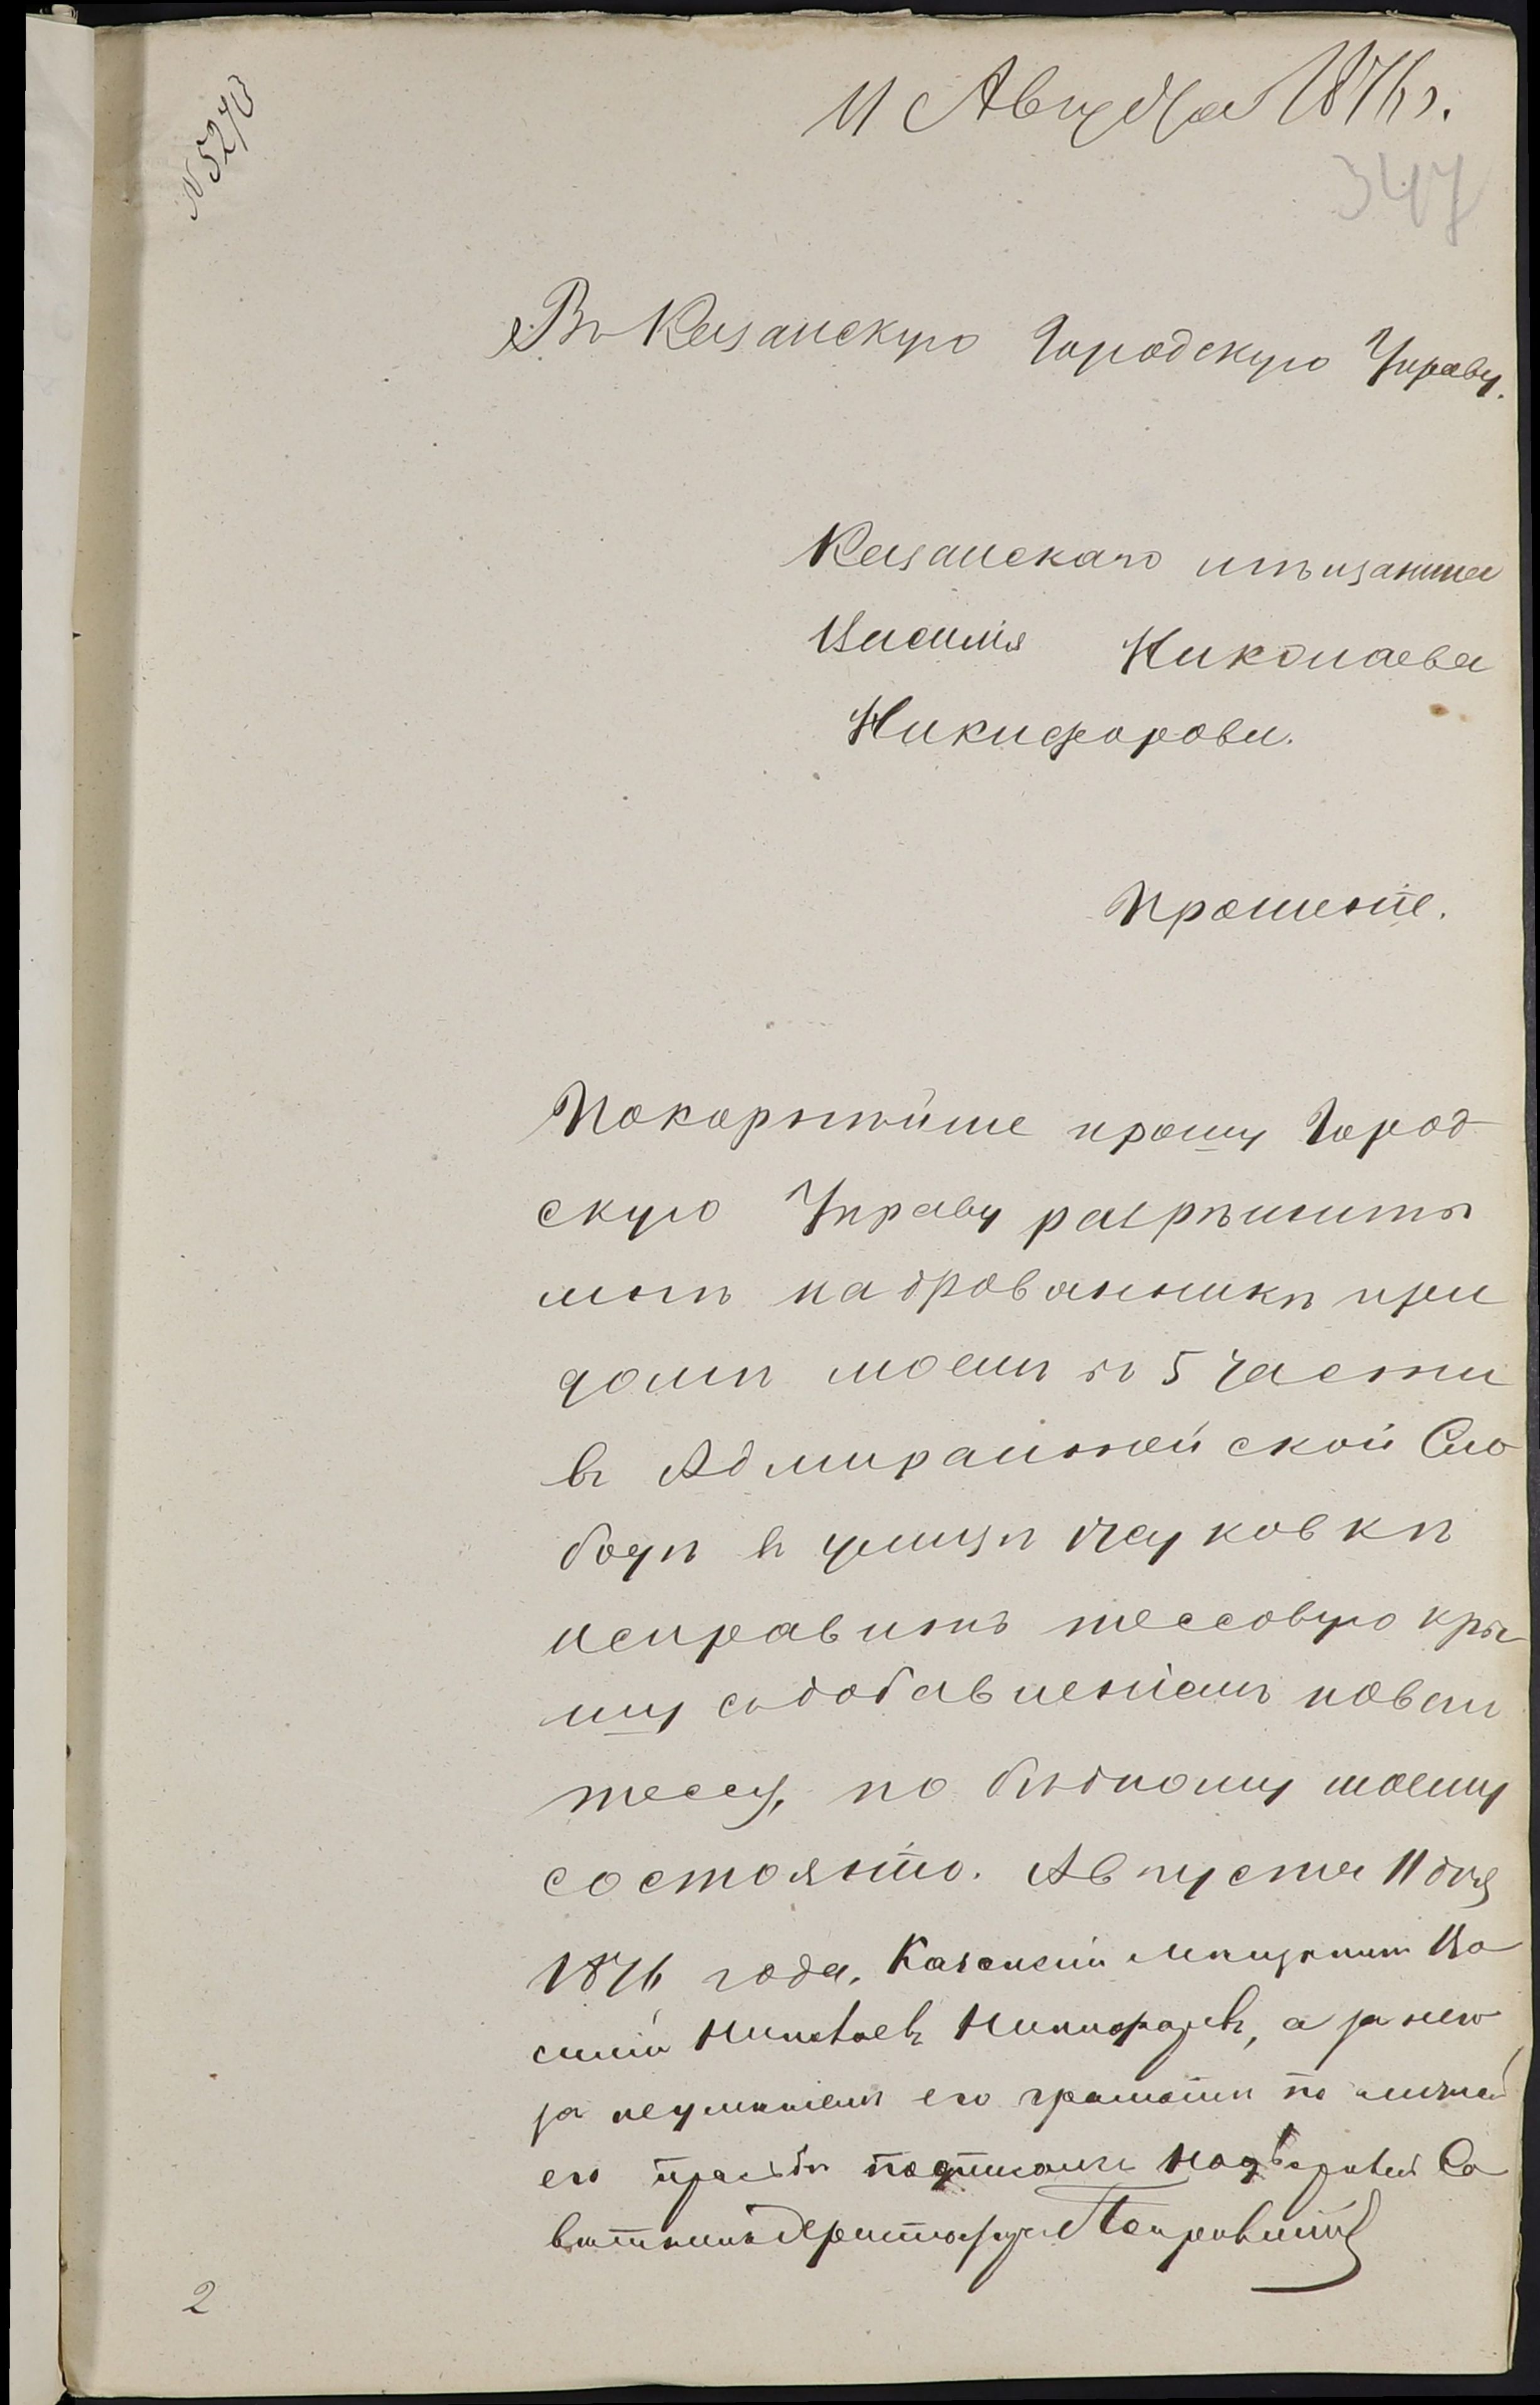 № 5270
11 Августа 1876 г.
347
Въ Казанскую Городскую Управу.
Казанскаго мѣщанина
Василія Николаева
Никифорова.
Прошеніе.
Покорнѣйше прошу Город
скую Управу разрѣшить
мнѣ на дровянникѣ при
домѣ моемъ въ 5 части
въ Адмиралтейской Сло
бодѣ въ улицѣ
исправить тессовую кры
шу съ добавленіемъ новаго
тессу, по бѣдному моему
состоянію. Августа 11 дня
1876 года. Казанскій Мѣщанинъ Ва
силій Николаевъ Никифоровъ, а за него
за неумѣніемъ его грамотѣ по личной
его просьбѣ подписалъ Надворный Со
вѣтникъ Покровскій
2